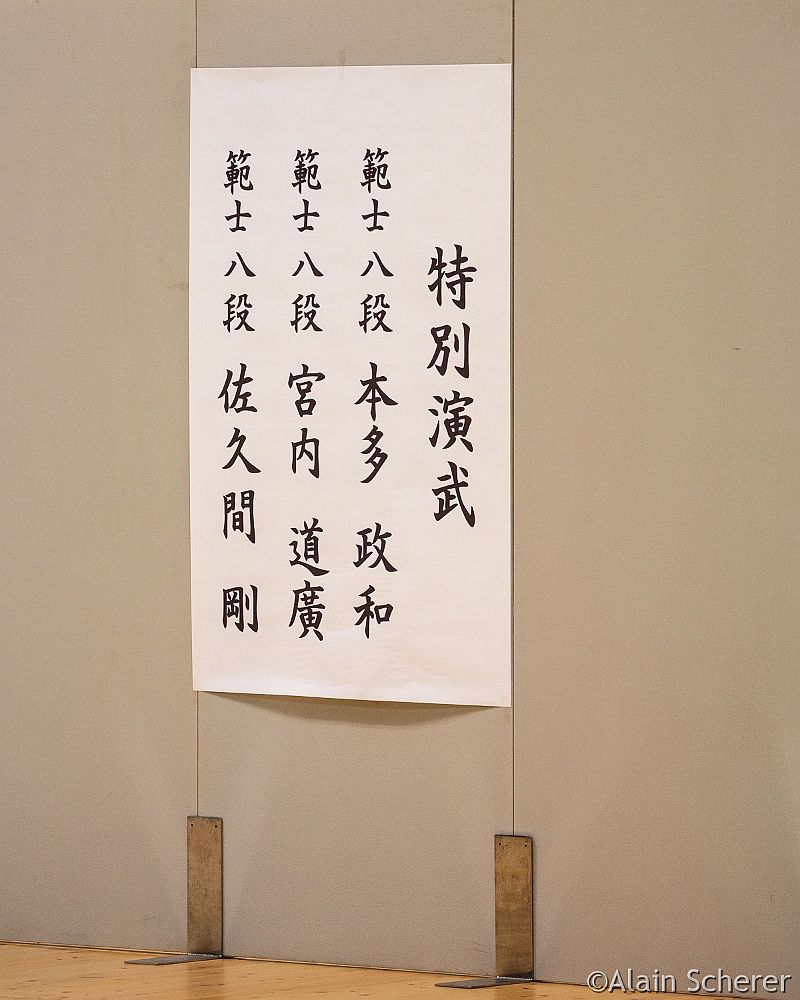 特別演武
範士八段 本多 政和
範士八段 宮内 道廣
範士八段 佐久間 剛
©Alain Scherer